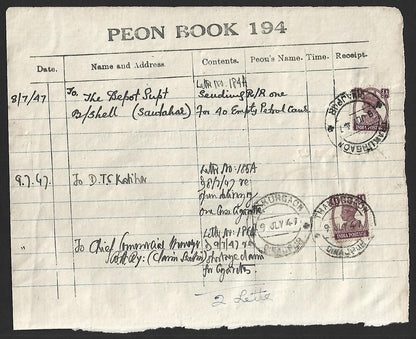 PEON BOOK 194
Date. Name and Address Contents. Peon's Name. Time. Receipt.
8/7/47 To The Depot Supt Letter No: 184A
Sending R/R one
B/Shell (Santahar) for 40 Empty Petrol Cans
THAKURGAON
DINAJPUR
INDIA POSTAGE
9.7.47. To D.T.S Katihar Letter No: 185A
D/8/7/47 re
one Case Cigarettes
Letter No: 186A
To Chief Commercial Manager D 9/7/47
(Claim Section) shortage claim
for Cigarettes
THAKURGAON
9 JLY 47
DINAJPUR
THAKURGAON
DINAJPUR
INDIA POSTAGE
2 Letters